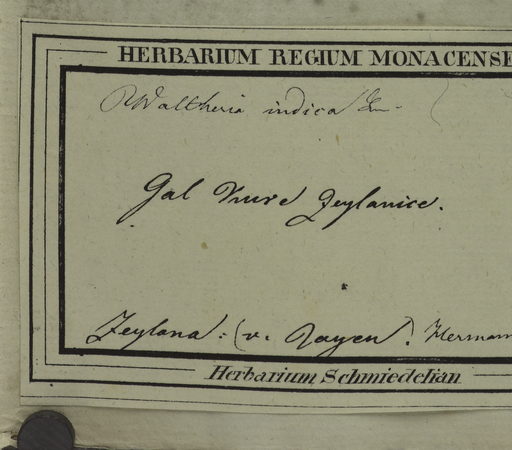 HERBARIUM REGIUM MONACENSE
Waltheria indica Lin.
Gal Nure Zeylanice.
Zeylana: (v. Royen). Hermann
Herbarium Schmiedelian